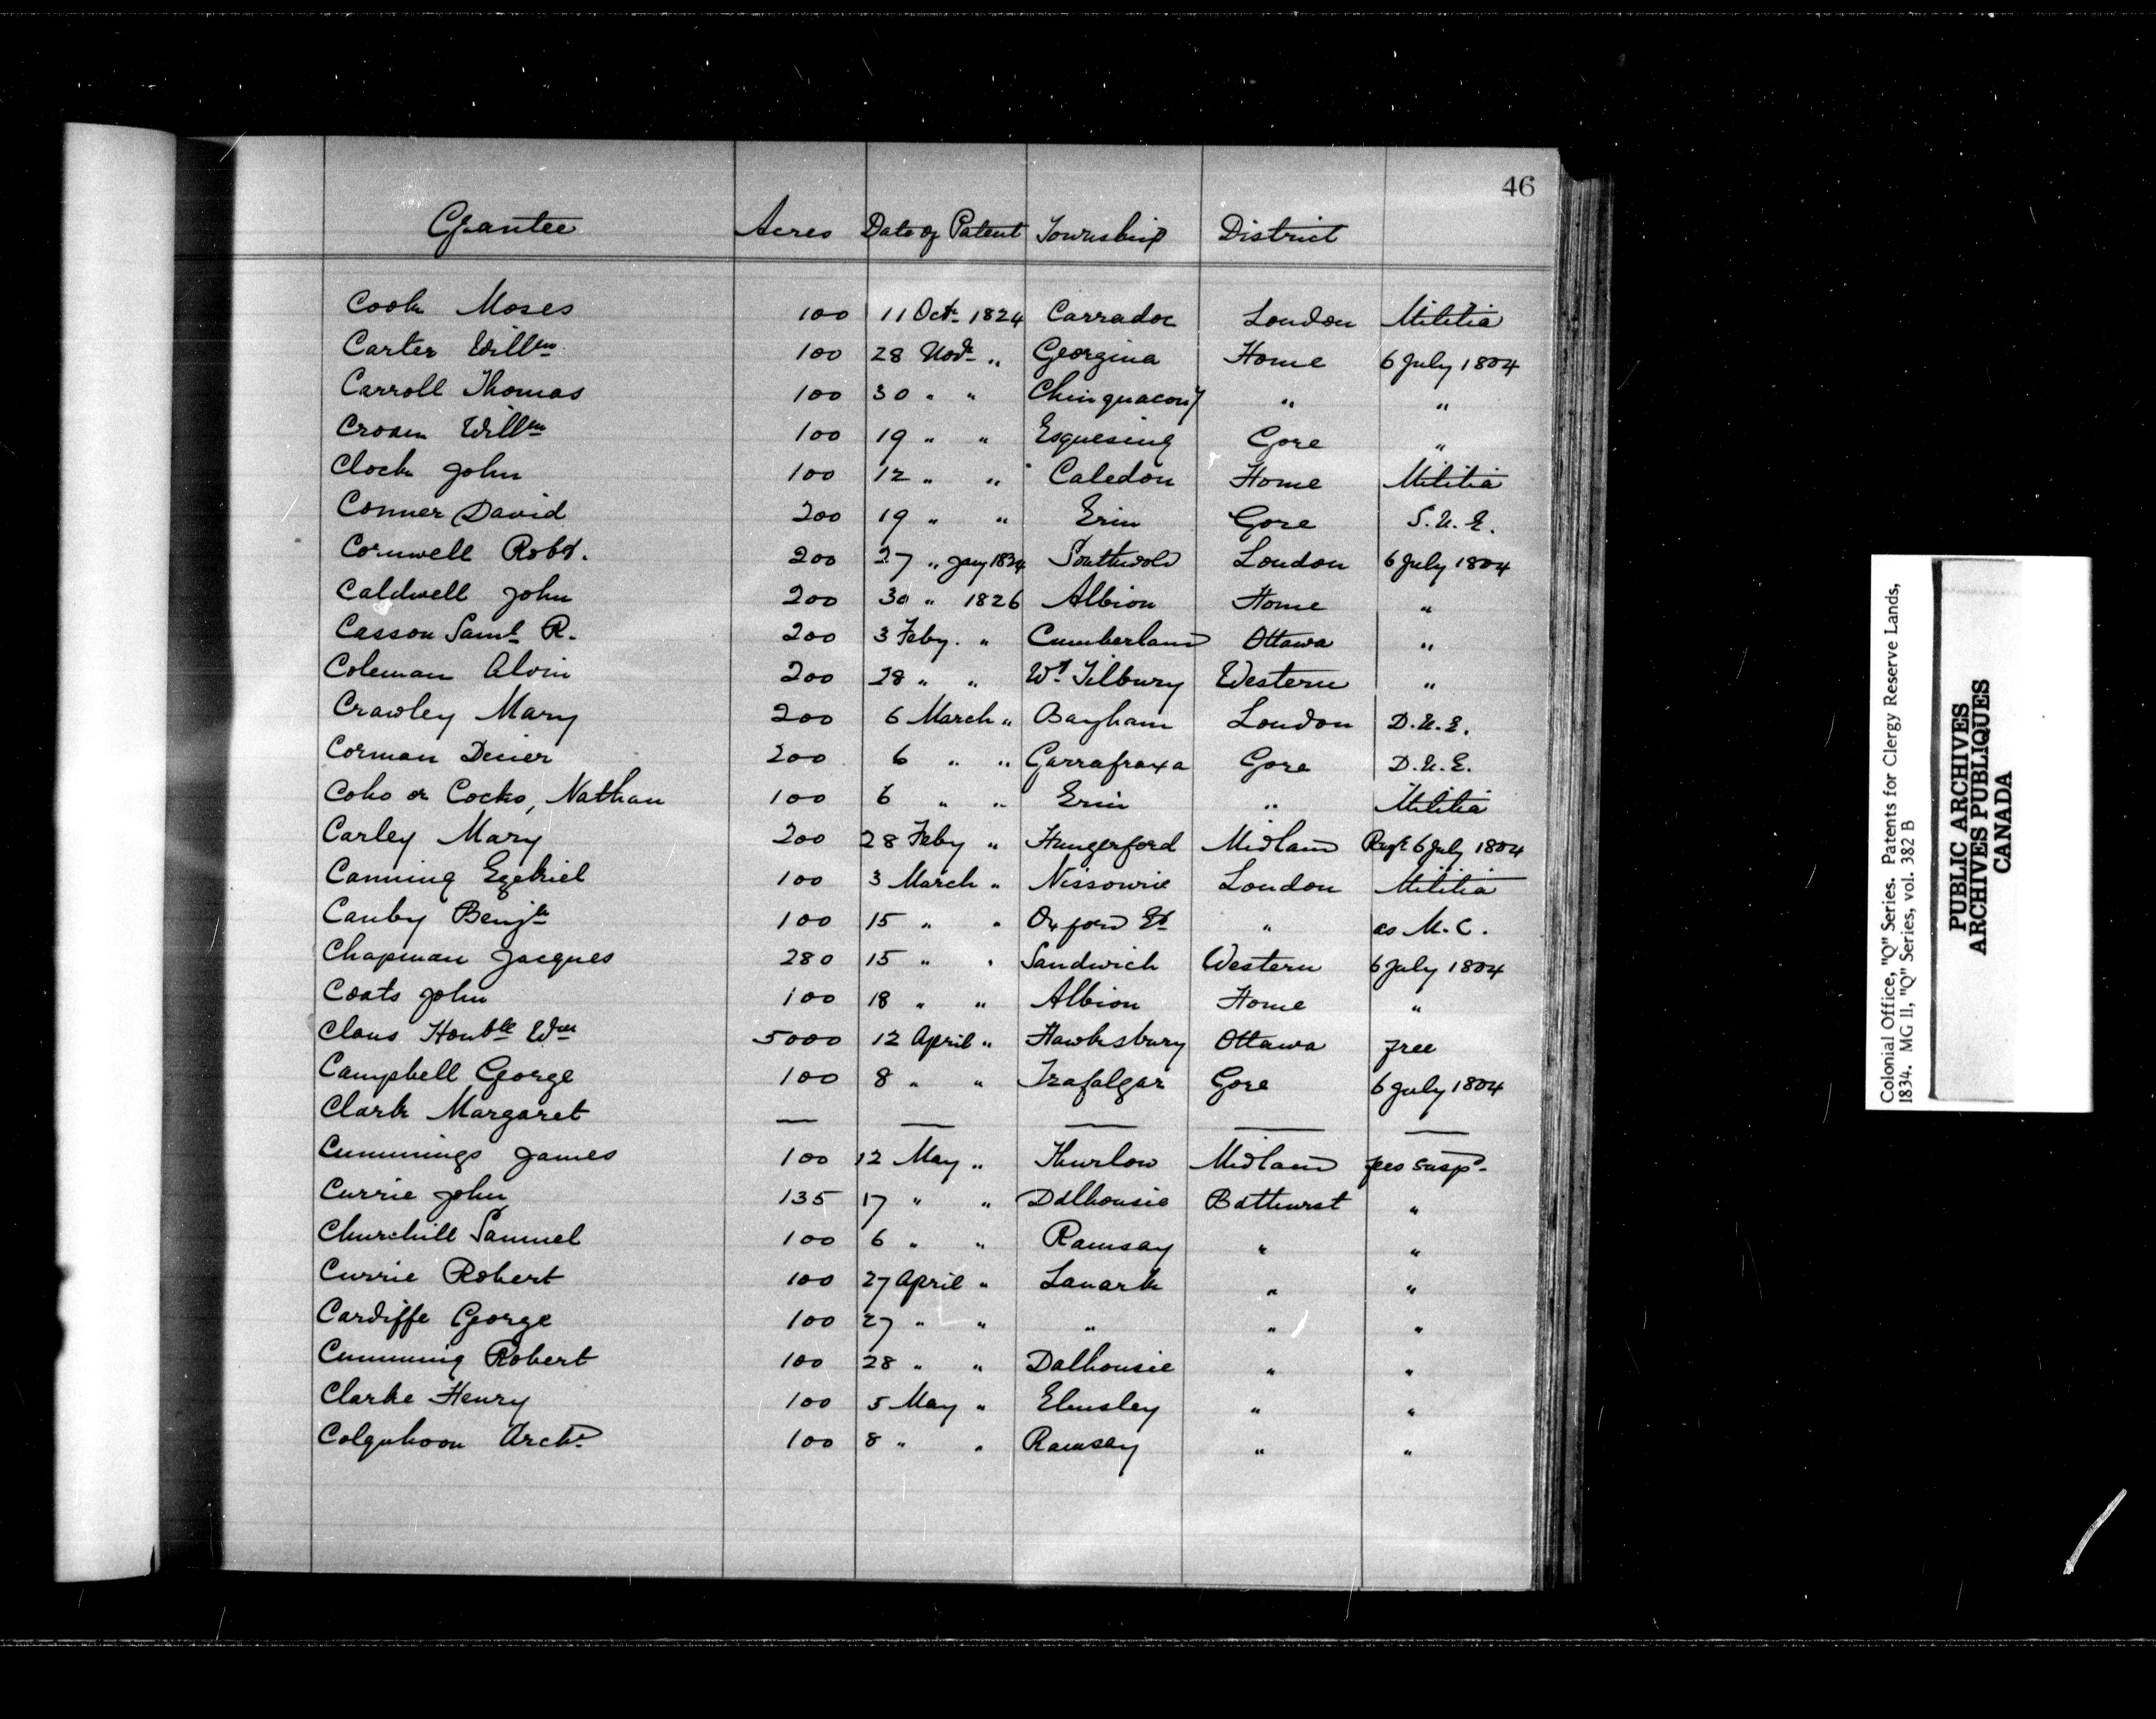 46
Grantee Acres Date of Patent Township District
Cook Moses 100 11 Octr 1824 Carradoc London Militia
Carter Willm 100 28 Novr " Georgina Home 6 July 1804
Carroll Thomas 100 30 " " Chinguacousy " "
Croam Willm 100 19 " " Esquesing Gore "
Clock John 100 12 " " Caledon Home Militia
Conner David 200 19 " " Erin Gore S.U.E.
Cornwell Robt. 200 27 " Jany 1824 Southwold London 6 July 1804
Caldwell John 200 30 " 1826 Albion Home "
Casson Saml R. 200 3 Feby. " Cumberland Ottawa "
Coleman Alvin 200 28 " " Wt Tilbury Western "
Crawley Mary 200 6 March " Bayham London D.U.E.
Corman Dener 200 6 " " Garrafraxa Gore D.U.E.
Coho or Cocho, Nathan 100 6 " " Erin " Militia
Carley Mary 200 28 Feby " Hungerford Midland 6 July 1804
Canning Ezekiel 100 3 March " Nissourie London Militia
Canby Benjn 100 15 " " Oxford Et " as M.C.
Chapman Jacques 280 15 " " Sandwich Western 6 July 1804
Coats John 100 18 " " Albion Home "
Claus Honble Wm 5000 12 April " Hawksbury Ottawa free
Campbell George 100 8 " " Trafalgar Gore 6 July 1804
Clark Margaret — — — — —
Cummings James 100 12 May " Thurlow Midland fees susp.
Currie John 135 17 " " Dalhousie Bathurst "
Churchill Samuel 100 6 " " Ramsay " "
Currie Robert 100 27 April " Lanark " "
Cardiffe George 100 27 " " " " "
Cumming Robert 100 28 " " Dalhousie " "
Clarke Henry 100 5 May " Elmsley " "
Colquhoon Archd 100 8 " " Ramsay " "
Colonial Office, "Q" Series. Patents for Clergy Reserve Lands,
1834. MG 11, "Q" Series, vol. 382 B
PUBLIC ARCHIVES
ARCHIVES PUBLIQUES
CANADA